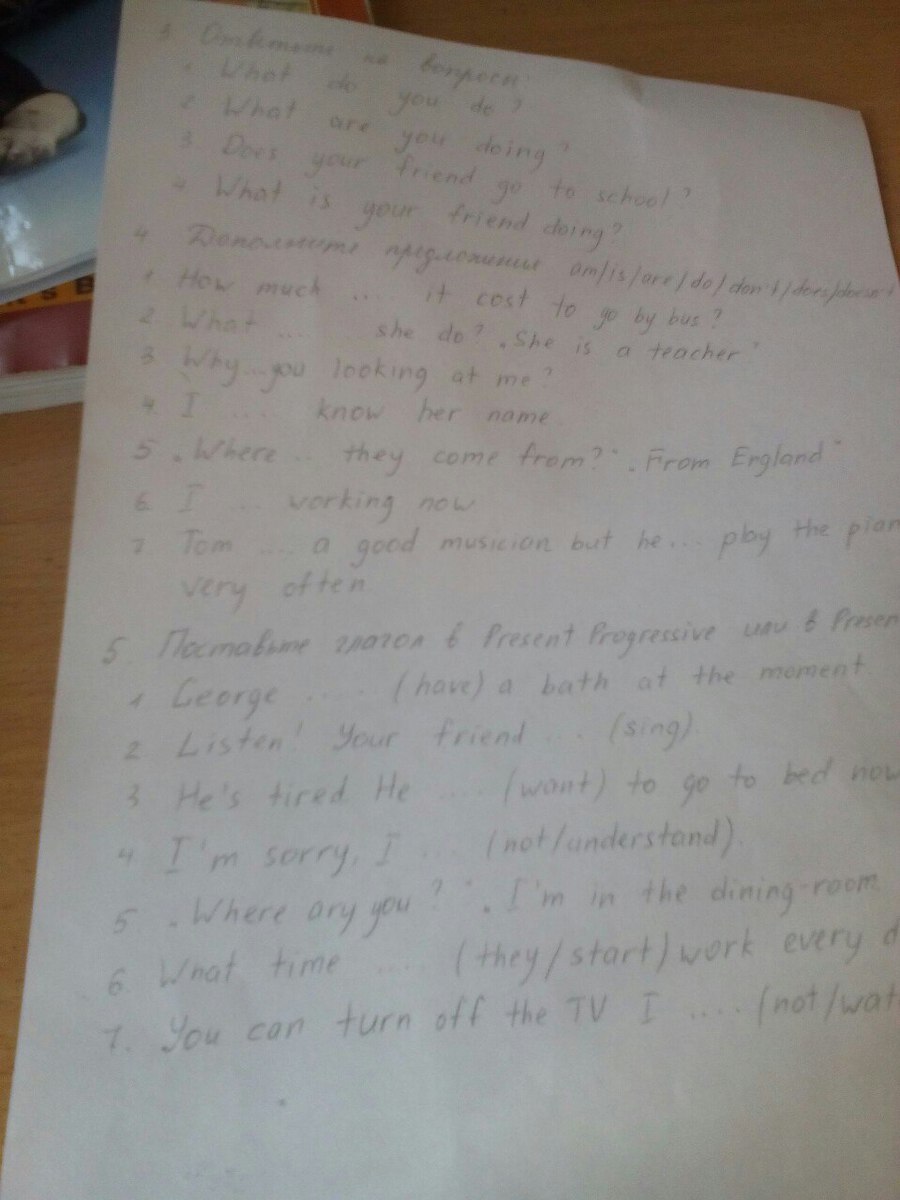 3 Ответьте на вопросы:
1 What do you do?
2 What are you doing?
3 Does your friend go to school?
4 What is your friend doing?
4 Дополните предложения am/is/are/do/don't/does/doesn't
1 How much ... it cost to go by bus?
2 What .... she do? "She is a teacher"
3 Why...you looking at me?
4. I .... know her name.
5 "Where .. they come from?" "From England"
6 I ... working now
7 Tom .... a good musician but he... play the pian
very often.
5. Поставьте глагол в Present Progressive или в Presen
1 George .... (have) a bath at the moment
2 Listen! Your friend ... (sing).
3 He's tired. He .... (want) to go to bed now
4 I'm sorry, I ... (not/understand).
5 "Where ary you?" "I'm in the dining-room
6. What time .... (they/start) work every d
7. You can turn off the TV I .... (not/wat